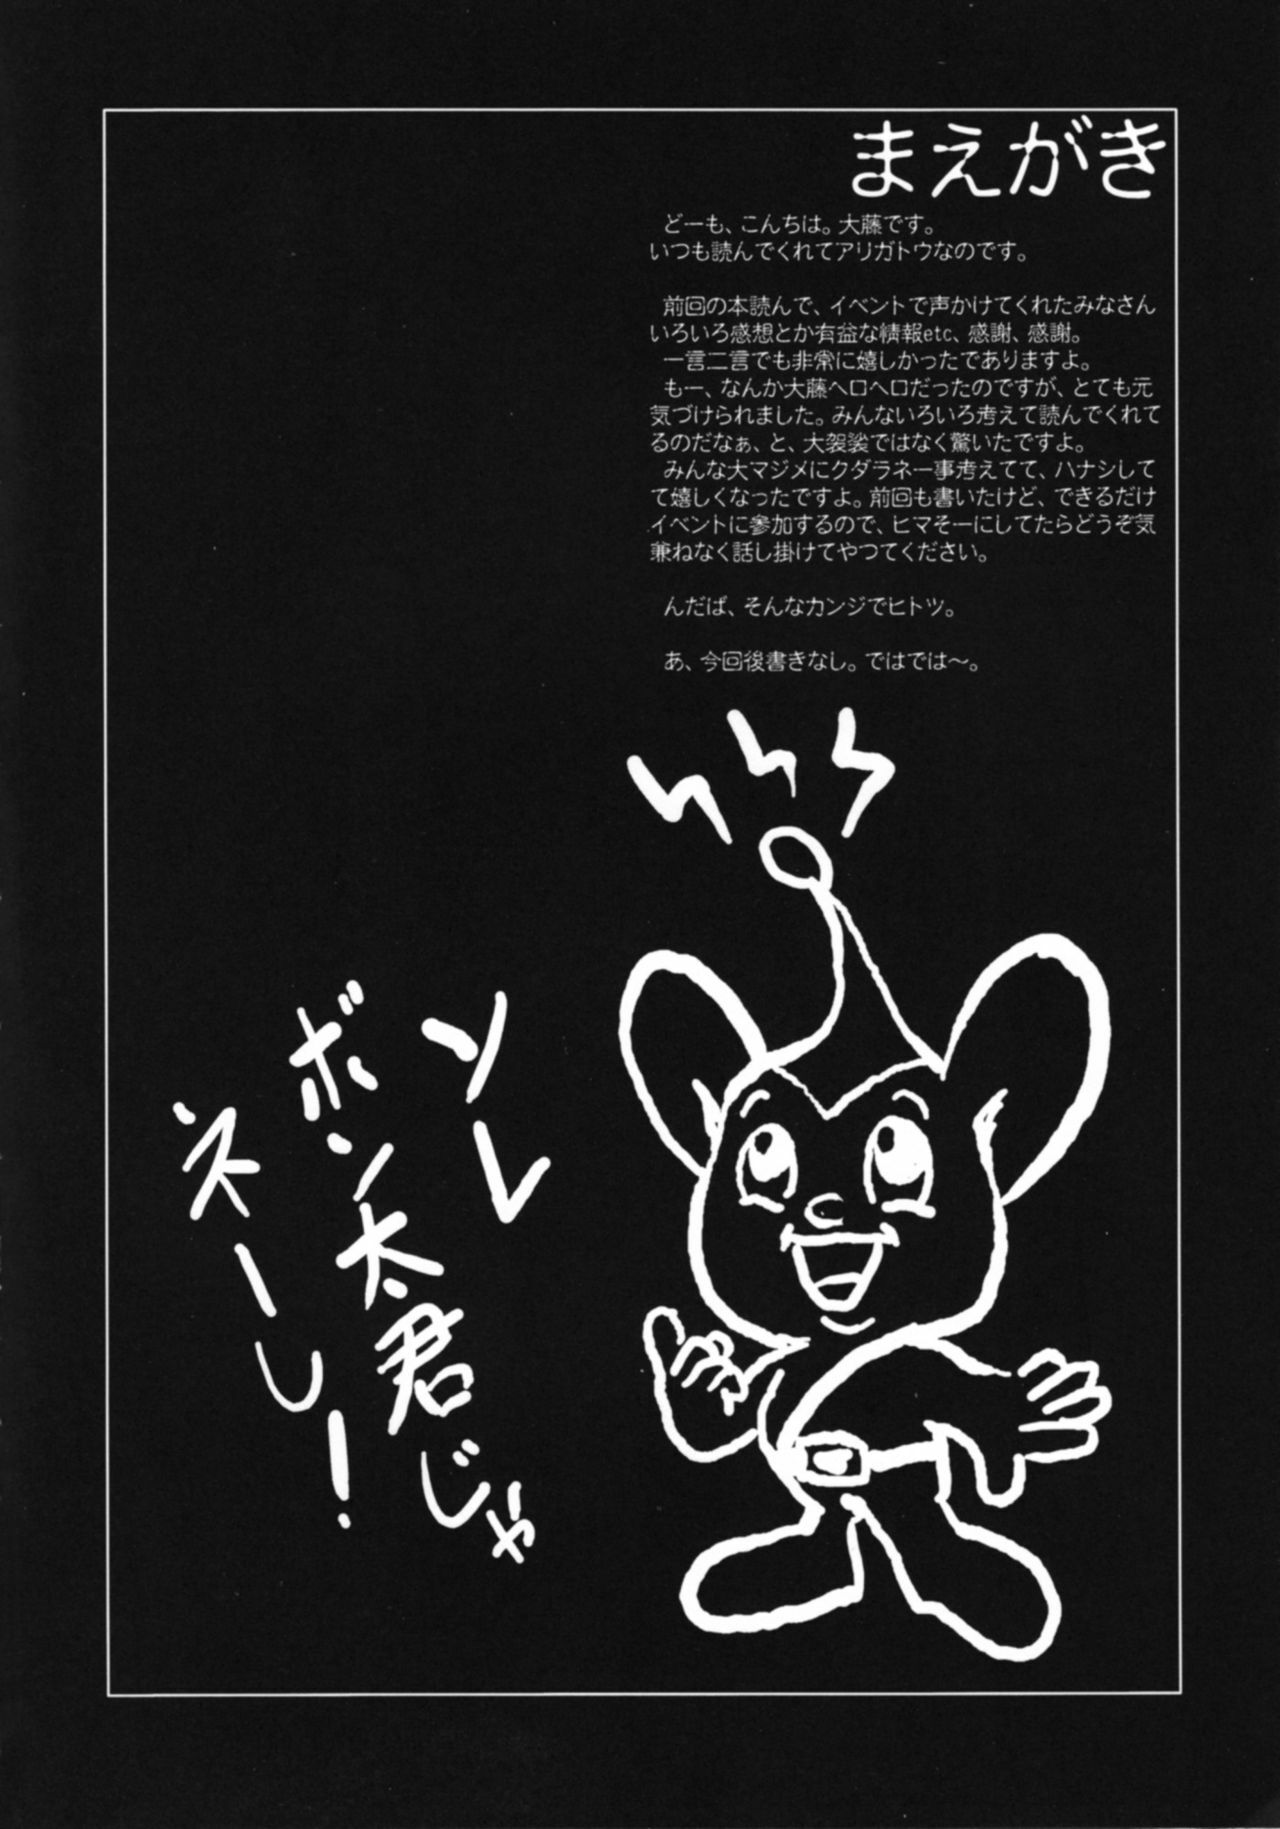 まえがき
どーも、こんちは。大藤です。
いつも読んでくれてアリガトウなのです。
前回の本読んで、イベントで声かけてくれたみなさん
いろいろ感想とか有益な情報etc、感謝、感謝。
一言二言でも非常に嬉しかったでありますよ。
もー、なんか大藤ヘロヘロだったのですが、とても元
気づけられました。みんないろいろ考えて読んでくれて
るのだなぁ、と、大袈裟ではなく驚いたですよ。
みんな大マジメにクダラネー事考えてて、ハナシして
て嬉しくなったですよ。前回も書いたけど、できるだけ
イベントに参加するので、ヒマそーにしてたらどうぞ気
兼ねなく話し掛けてやつてください。
んだば、そんなカンジでヒトツ。
あ、今回後書きなし。ではでは～。
ソレ
ボン太君じゃ
ネーし!